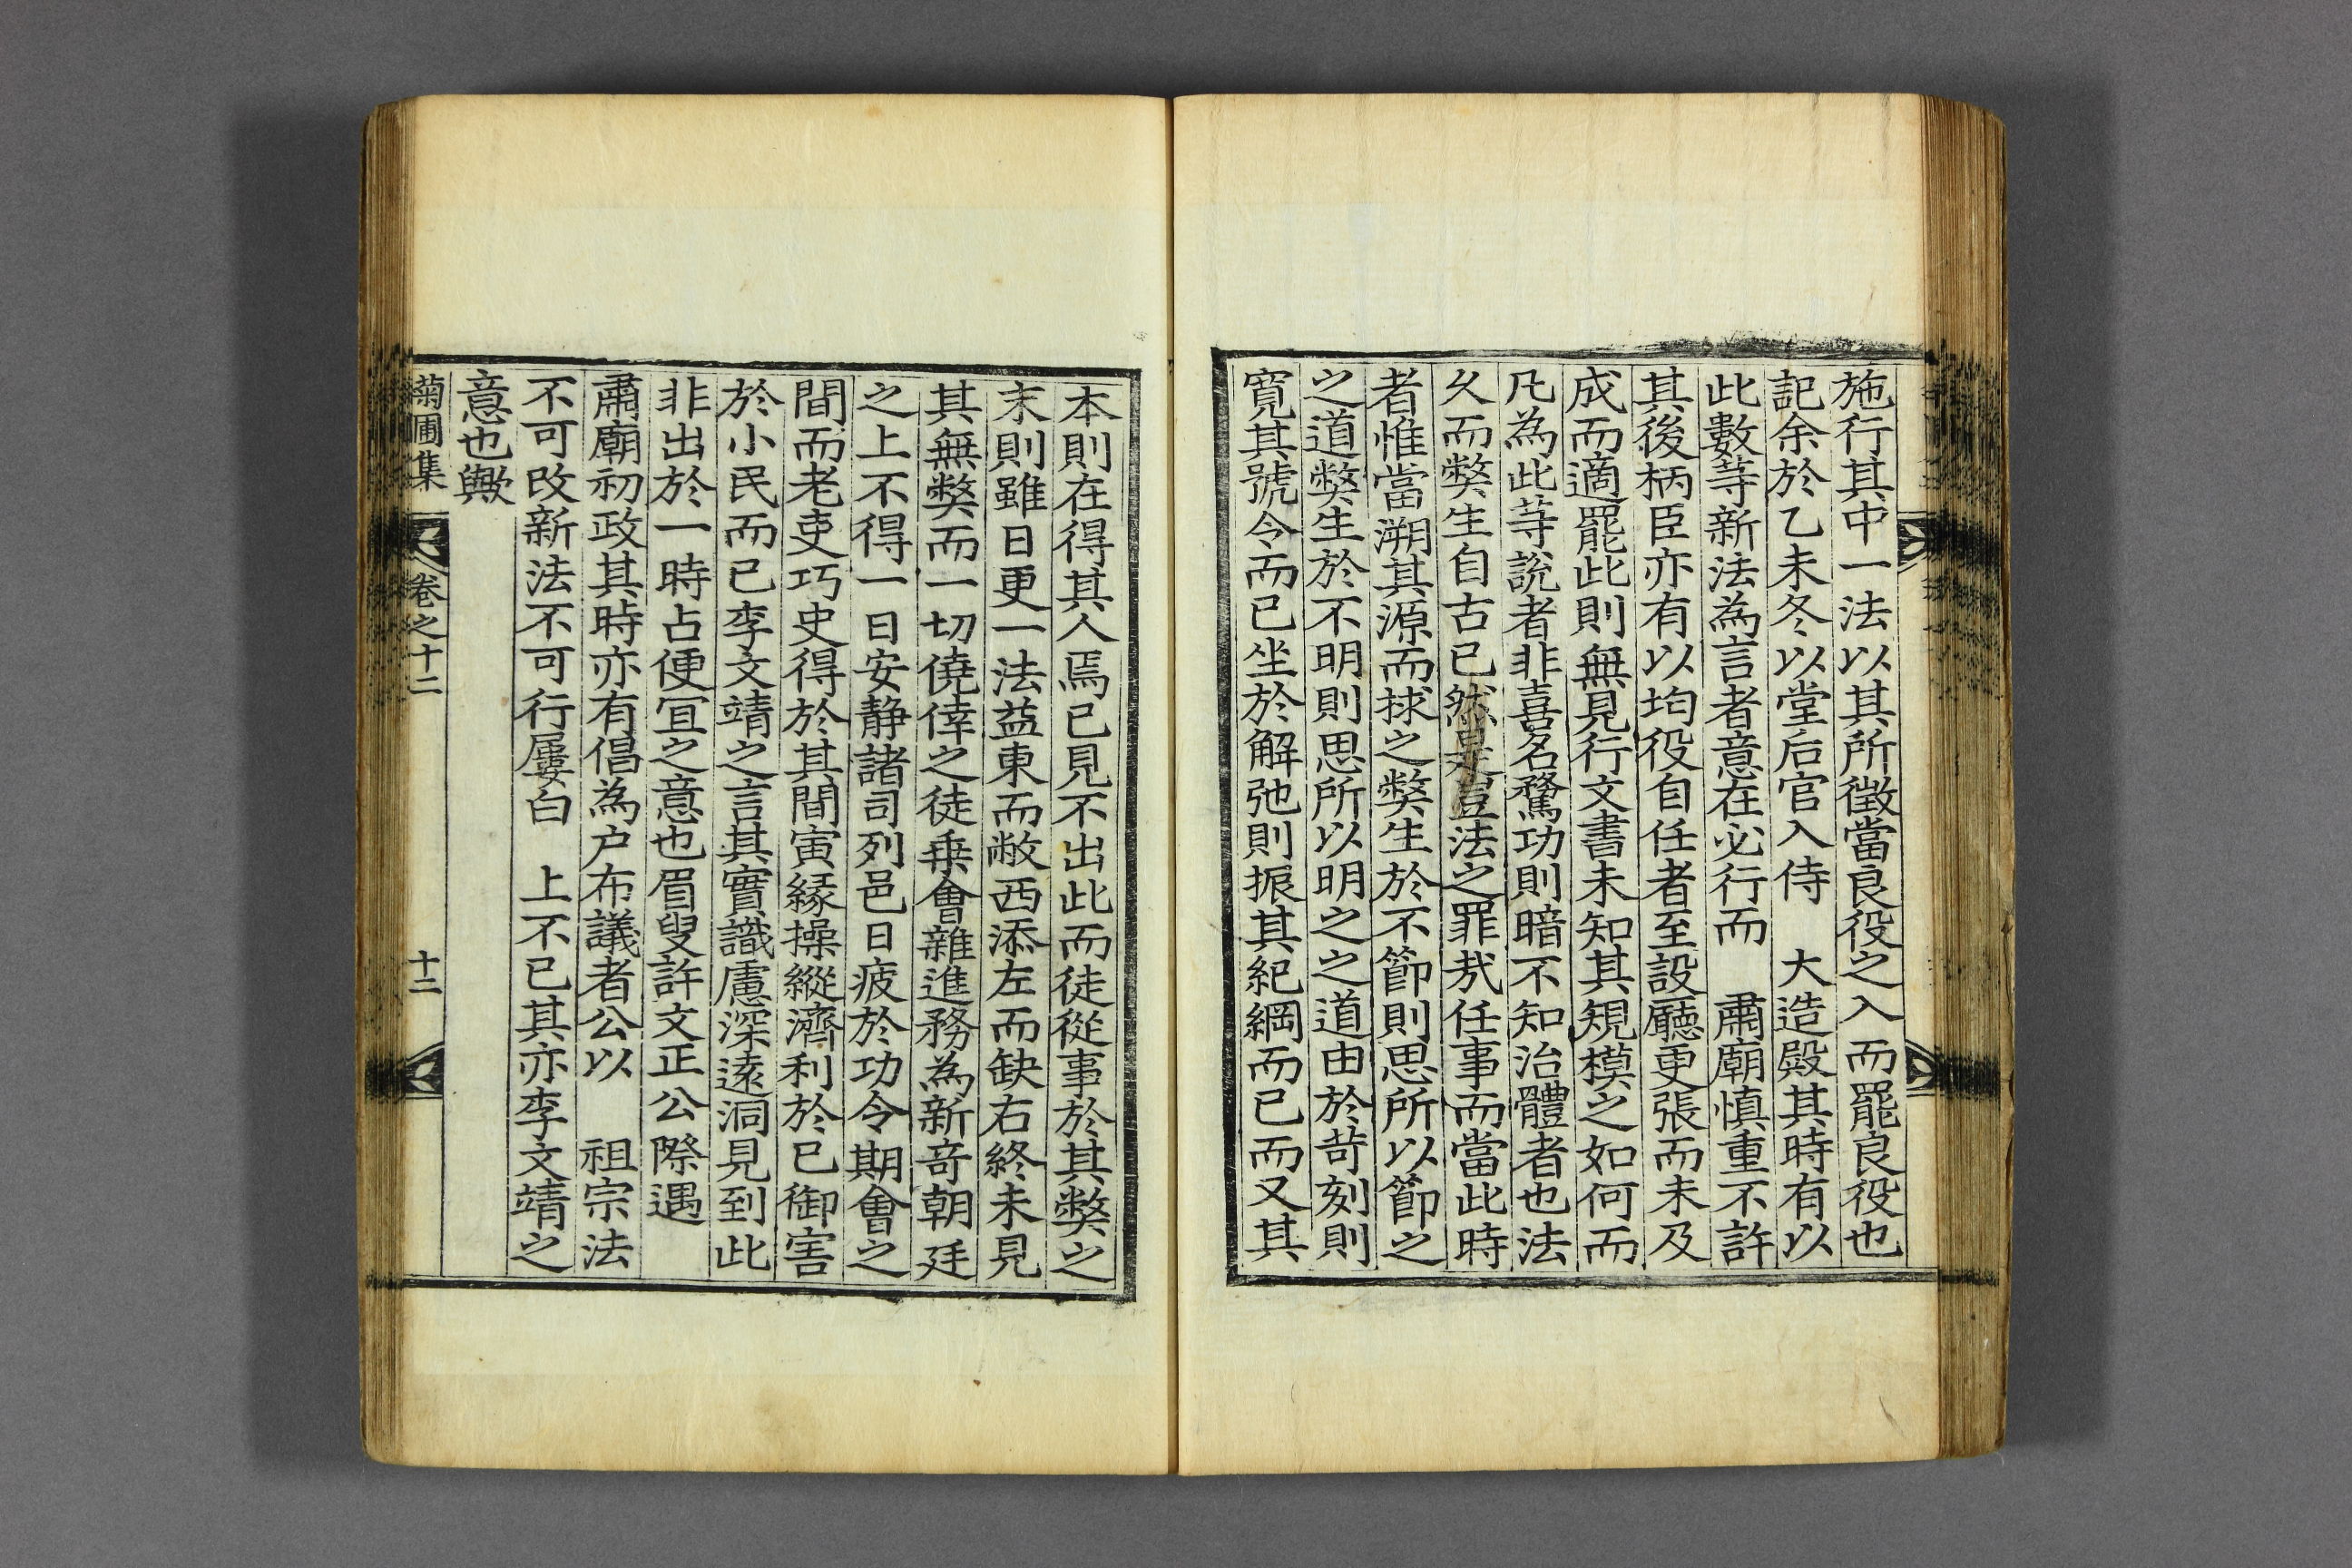 施行其中一法以其所徵當良役之入而罷良役也
記余於乙未冬以堂后官入侍　大造殿其時有以
此數等新法為言者意在必行而　肅廟愼重不許
其後柄臣亦有以均役自任者至設廳更張而未及
成而適罷此則無見行文書未知其規模之如何而
凡為此等說者非喜名騖功則暗不知治體者也法
久而弊生自古已然是豈法之罪㢤任事而當此時
者惟當溯其源而捄之弊生於不節則思所以節之
之道弊生於不明則思所以明之之道由於苛刻則
寬其號令而已坐於解弛則振其紀綱而已而又其
本則在得其人焉已見不出此而徒從事於其弊之
末則雖日更一法益東而敝西添左而缺右終未見
其無弊而一切僥倖之徒乗會雜進務為新奇朝廷
之上不得一日安静諸司列邑日疲於功令期會之
間而老吏巧史得於其間寅緣操縱濟利於已御害
於小民而已李文靖之言其實識慮深遠洞見到此
非出於一時占便宜之意也眉叟許文正公際遇
肅廟初政其時亦有倡為户布議者公以　祖宗法
不可改新法不可行屢白　上不已其亦李文靖之
意也歟
菊圃集　卷之十二　十二